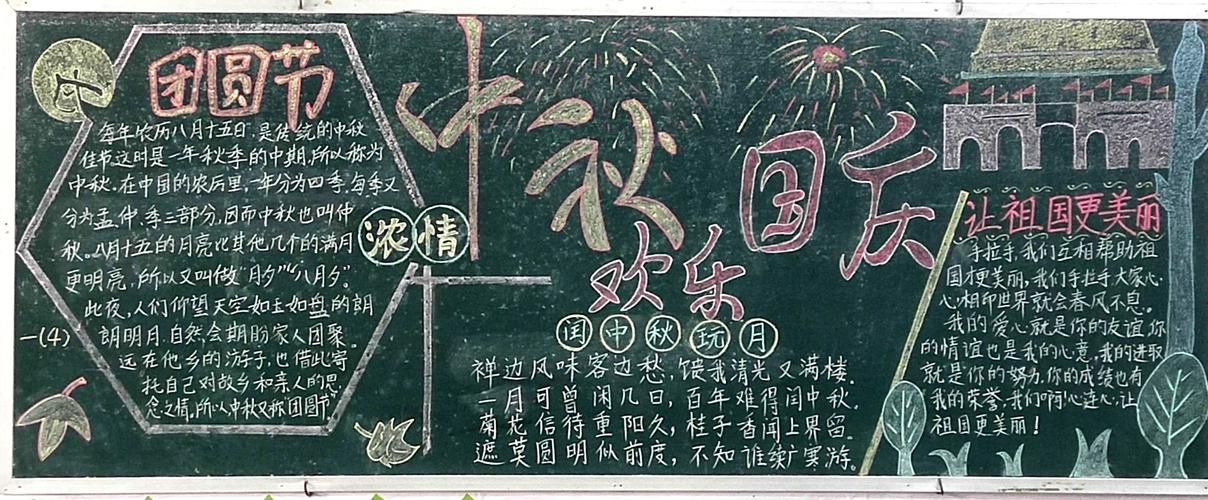 中
团圆节
每年农历八月十五日,是传统的中秋
佳节,这时是一年秋季的中期,所以称为
中秋。在中国的农历里,一年分为四季,每季又
分为孟、仲、季三部分,因而中秋也叫仲
秋。八月十五的月亮比其他几个的满月
更明亮,所以又叫做“月夕”“八月夕”。
此夜,人们仰望天空如玉如盘的朗
朗明月,自然会期盼家人团聚。
远在他乡的游子,也借此寄
托自己对故乡和亲人的思
念之情,所以中秋又称“团圆节”
一(4)
浓情
中秋
国庆
欢乐
闰中秋玩月
禅边风味客边愁,馈我清光又满楼。
一月可曾闲几日,百年难得闰中秋。
菊花信待重阳久,桂子香闻上界留。
遮莫圆明似前度,不知谁续广寒游。
让祖国更美丽
手拉手,我们互相帮助祖
国才更美丽,我们手拉手大家心
心相印世界就会春风不息。
我的爱心就是你的友谊,你
的情谊也是我的心意,我的进取
就是你的努力,你的成绩也有
我的荣誉,我们啊!心连心,让
祖国更美丽!